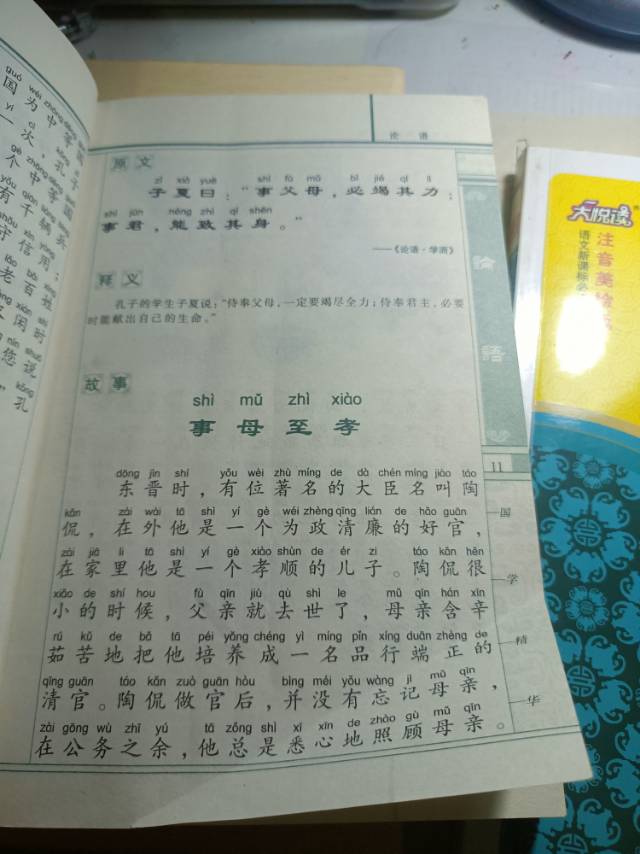 国为中等国
一次，孔子
个中等国
有千辆兵
守信用；
老百姓
您说
孔
论语
原文
zǐ xià yuē shì fù mǔ bì jié qí lì
子夏曰：“事父母，必竭其力；
shì jūn néng zhì qí shēn
事君，能致其身。”
——《论语·学而》
释义
孔子的学生子夏说：“侍奉父母，一定要竭尽全力；侍奉君主，必要
时能献出自己的生命。”
故事
shì mǔ zhì xiào
事母至孝
dōng jìn shí yǒu wèi zhù míng de dà chén míng jiào táo
东晋时，有位著名的大臣名叫陶
kǎn zài wài tā shì yí gè wéi zhèng qīng lián de hǎo guān
侃，在外他是一个为政清廉的好官，
zài jiā lǐ tā shì yí gè xiào shùn de ér zi táo kǎn hěn
在家里他是一个孝顺的儿子。陶侃很
xiǎo de shí hou fù qīn jiù qù shì le mǔ qīn hán xīn
小的时候，父亲就去世了，母亲含辛
rú kǔ de bǎ tā péi yǎng chéng yì míng pǐn xíng duān zhèng de
茹苦地把他培养成一名品行端正的
qīng guān táo kǎn zuò guān hòu bìng méi yǒu wàng jì mǔ qīn
清官。陶侃做官后，并没有忘记母亲，
zài gōng wù zhī yú tā zǒng shì xī xīn de zhào gù mǔ qīn
在公务之余，他总是悉心地照顾母亲。
論語
11
国学精华
大悦读
注音美绘
语文新课标必